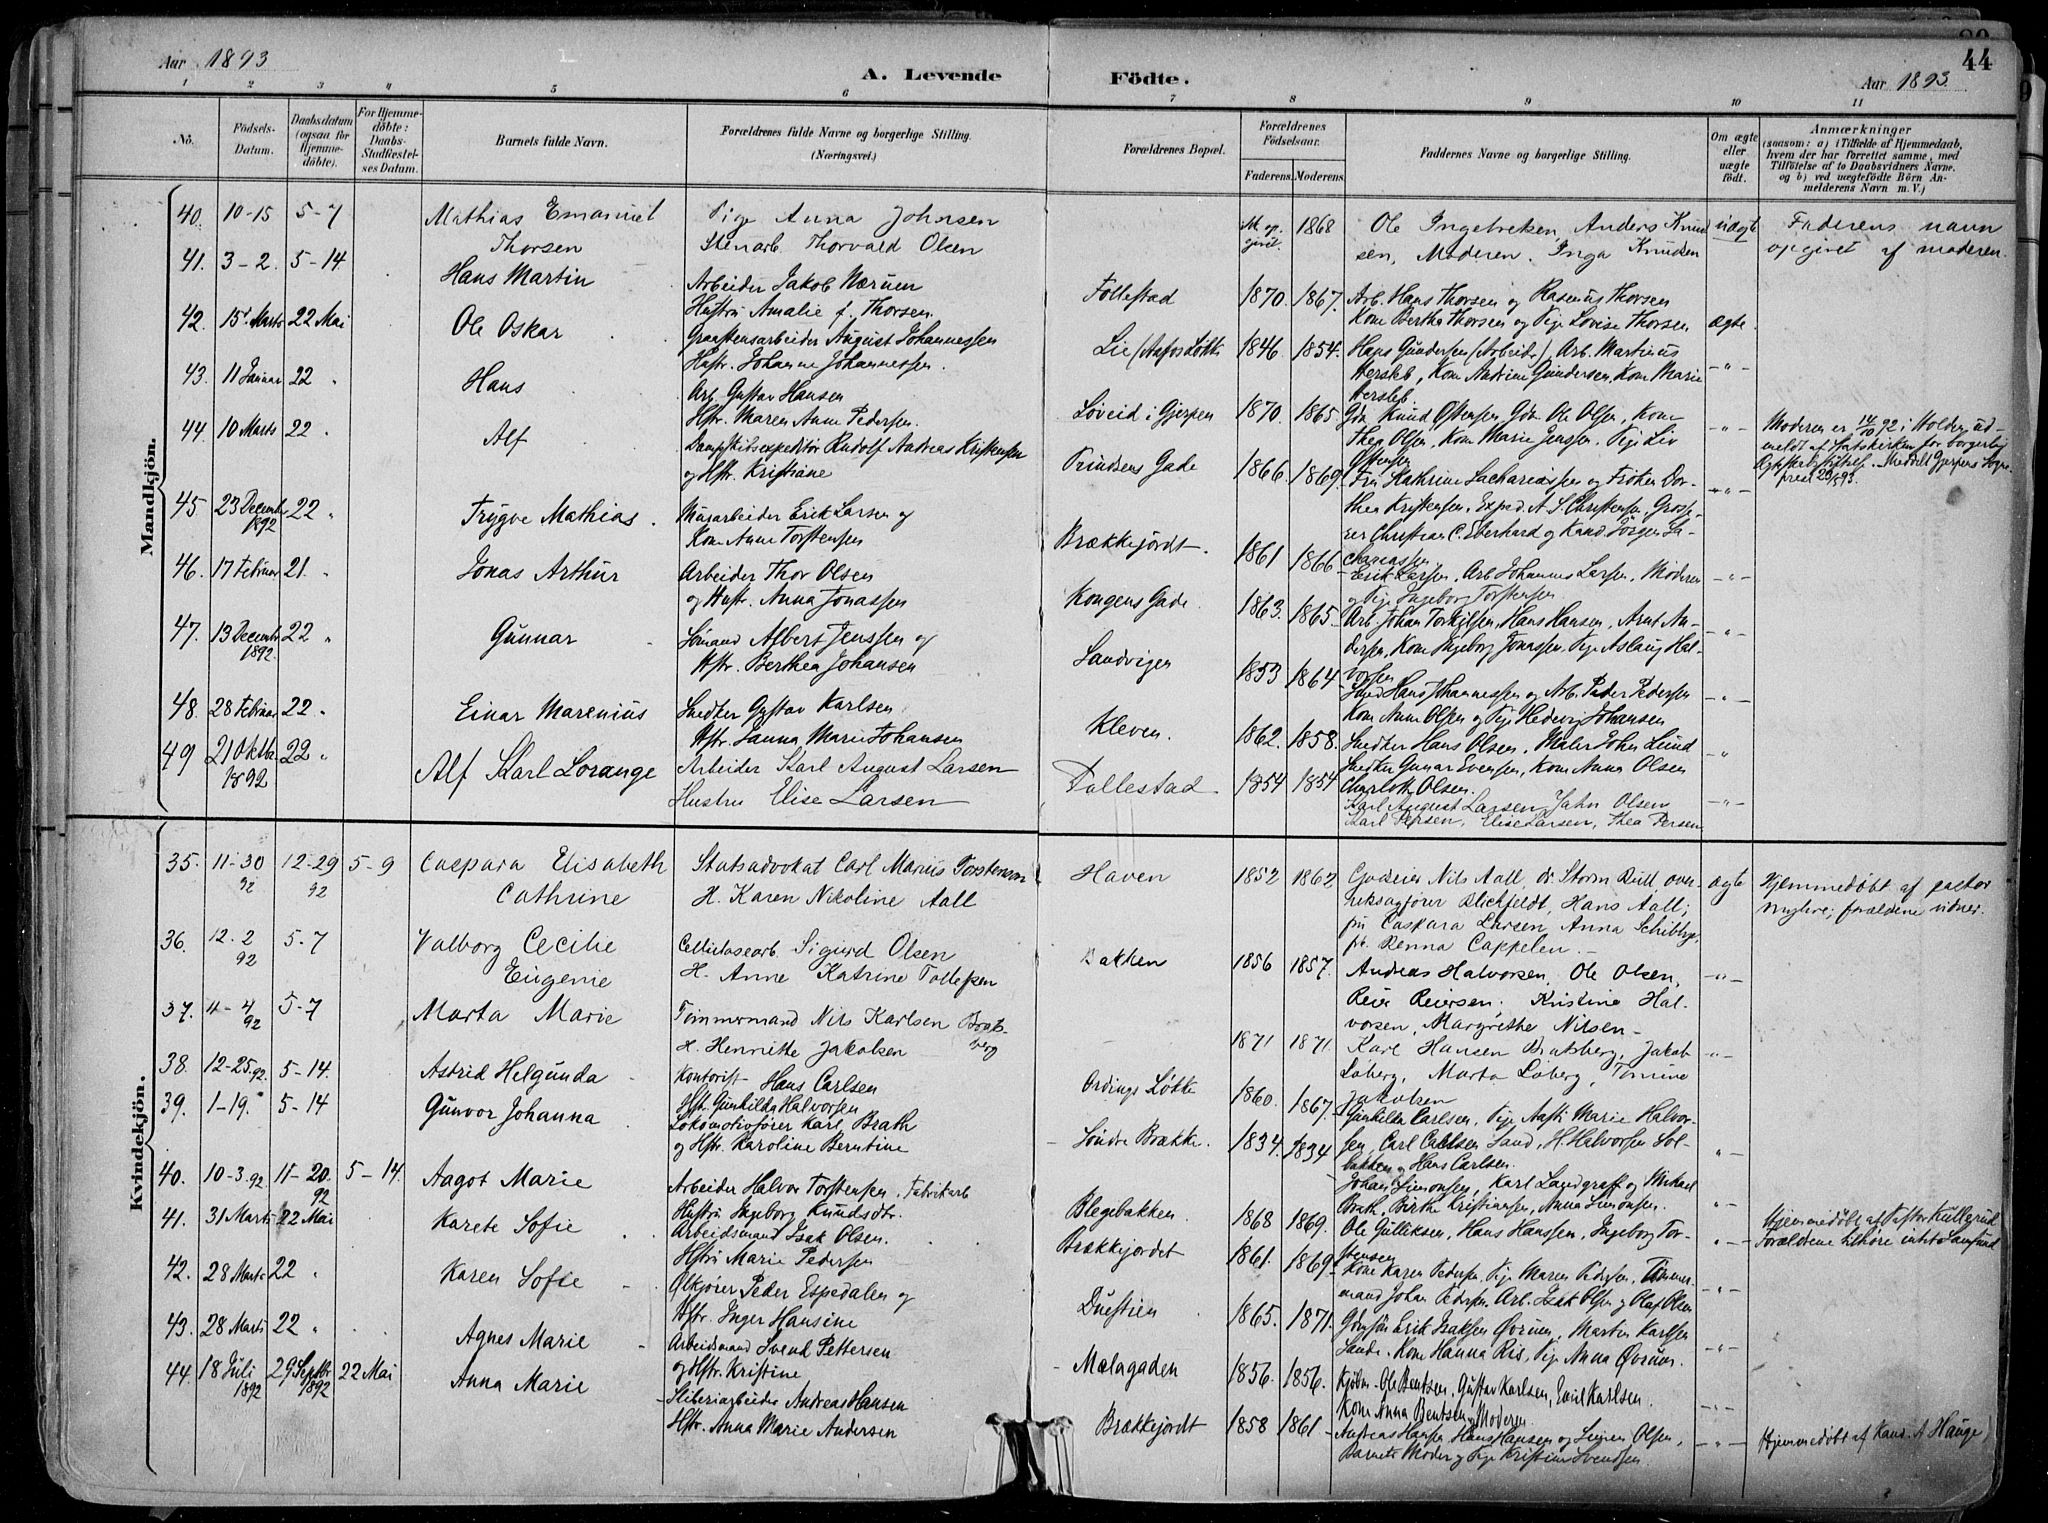 Aar 1893
A. Levende Födte.
Aar 1893
44
1 2 3 4 5 6 7 8 9 10 11
No.
Födsels-Datum.
Daabsdatum (ogsaa for Hjemmedöbte).
For Hjemmedöbte: Daabs-Stadfæstelses Datum.
Barnets fulde Navn.
Forældrenes fulde Navne og borgerlige Stilling. (Næringsvei.)
Forældrenes Bopæl.
Forældrenes Födselsaar.
Faderens. Moderens.
Faddernes Navne og borgerlige Stilling.
Om ægte eller uægte födt.
Anmærkninger
(saasom: a) i Tilfælde af Hjemmedaab, hvem der har forrettet samme, med Tilföielse af to Daabsvidners Navne. og b) ved uægtefödte Börn Anmelderens Navn m. V.)
Mandkjön.
40. 10-15 5-7 Mathias Emanuel Thorsen
Pige Anna Johnsen
Stenarb Thorvard Olsen
1868
Ole Ingebretsen Anders Knudsen, Moderen. Inga Knudsen
uægte
Faderens navn opgivet af moderen.
41. 3-2. 5-14. Hans Martin
Arbeider Jakob Nærum
Hustru Amalie f. Thorsen.
Follestad 1870. 1867.
Arb. Hans Thorsen og Rasmus Thorsen
Kone Bertha Thorsen og Pige Lovise Thorsen
ægte
42. 15 Marts 22 Mai Ole Oskar
Graastensarbeider August Johannessen
Hustr. Johanne Johannessen.
Lie 1846 1854.
Hans Gundersen (Arbeider), Arb. Martinus
Hersleb, Kone Andrine Gundersen, Kone Marie
Hersleb.
43. 11 Januar 22 " Hans
Arb. Gustav Hansen
Hstr. Maren Anne Pedersen.
Løveid i Gjerpen 1870. 1865
Knud Ostensen, Ole Olsen, Kone
Thea Olsen, Kone Marie Jenssen. Pige Liv
Ostensen
Moderen er 14/10 92 i Holden udmeldt af Statskirken for borgerlig
44. 10 Marts 22 " Alf
Dampskibsexpeditör Rudolf Andreas Kristensen
og Hstr. Kristiane
Prindsens Gade 1866. 1869.
Fru Kathrine Zachariassen og Frøken Dorthea Kristensen, Exped. A. S. Christensen, Grosserer Christian C. Eberhard og Kand. Jörgen Zachariassen
45 23 December 1892 22 " Trygve Mathias.
Murarbeider Erik Larsen og
Kone Anne Torstensen
Brækkejordt. 1861 1866
Erik Larsen, Arb Johannes Larsen, Moderen
og Pige Ingeborg Torstensen
46. 17 Februar 21. " Jonas Arthur
Arbeider Thor Olsen
og Hustr. Anna Jonassen
Kongens Gade. 1863. 1865
Arb. Johan Torkilsen, Hans Hansen, Arnt Andersen, Kone Ingeborg Jonassen, Pige Aslaug Halvorsen
47. 13 December 1892. 22 " Gunnar
Sömand Albert Jenssen og
Hstr. Berthea Johansen
Sandvigen 1853 1864
Smed Hans Johannessen og Arb. Peder Pedersen
Kone Anne Olsen og Pige Hedevig Johansen
48. 28 Februar 22 " Einar Marenius
Snedker Gustav Karlsen
Hstr. Janna Marie Johansen
Kleven. 1862. 1858.
Snedker Hans Olsen, Maler John Lund
Snedker Gunar Evensen, Kone Anna Olsen
Charlotte Olsen.
49 21 Oktbr. 1892 22 " Alf Karl Lorange
Arbeider Karl August Larsen
Hustru Elise Larsen
Follestad 1854 1854
Karl August Larsen, Jahn Olsen
Karl Persen, Elise Larsen, Thea Persen
Kvindekjön.
35. 11-30 92 12-29 92 5-9 Caspara Elisabeth Cathrine
Statsadvokat Carl Marius Torstenson
H. Karen Nikoline Aall
Haven 1852 1862
Godseier Nils Aall, dr. Storm Bull, overretssagfører Blichfeldt, Hans Aall;
frk Caspara Larsen, Anna Schibbye,
fr. Benna Cappelen.
ægte
Hjemmedøbt af pastor Myhre; forældrene vidner.
36. 12-2 92 5-7 Valborg Cecilie Eugenie
Cellulosearb. Sigurd Olsen
H. Anne Katrine Tollefsen
Bakken 1856 1857.
Andreas Halvorsen, Ole Olsen,
Reier Reiersen; Kristine Halvorsen, Margrethe Nilsen
37. 11-4 92 5-7 Marta Marie
Tømmermand Nils Karlsen Bratsberg
H. Henriette Jakobsen
1871 1871.
Karl Hansen Bratsberg, Jakob
Løberg, Marta Løberg, Tomine
Jakobsen
38. 12-25. 92. 5-14. Astrid Helgunda
Kontorist Hans Carlsen
Hstr. Gunhilda Halvorsen
Ordings Løkke 1860. 1867.
Gunhilda Carlsen, Pige Aasti Marie Halvorsen, Carl Carlsen Sand, H. Halvorsen Solbakken og Hans Carlsen.
39. 1-19. 5-14 Gunvor Johanna
Lokomotivfører Karl Brath
og Hstr. Karoline Berntine
Søndre Brække. 1834. 1834
Johan Simonsen, Karl Landgraff og Mikael
Brath, Birthe Kristiansen, Anna Simonsen.
40. 10-3. 92 11-20. 92 5-14. Aagot Marie
Arbeider Halvor Torstensen. Fabrikarb
Hustru Ingeborg Knudsdtr.
Blegebakken. 1868 1869.
Ole Gulliksen, Hans Hanssen, Ingeborg Torstensen
Hjemmedøbt af Pastor Kullerud
Forældrene tilhøre intet Samfund
41. 31 Marts 22 Mai Karete Sofie
Arbeidsmand Isak Olsen.
Hstru Marie Pedersen
Brækkejordet 1861. 1869
Kone Karen Pedersen, Pige Maren Pedersen, Tømmermand Johan Pedersen, Arb. Isak Olsen og Olaf Olsen
42. 28 Marts 22 " Karen Sofie
Ølkjører Peder Espedalen og
Hstr. Inger Hansine
Duestien 1865. 1871.
Erik Isaksen Øvrum, Martin Karlsen
Sande. Kone Hanna Ris, Pige Anna Øvrum.
43. 28 Marts 22 " Agnes Marie
Arbeidsmand Svend Pettersen
og Hstr. Kristine
Mælagaden 1856. 1856.
Kjøbm. Ole Bentsen, Gustav Karlsen, Emil Karlsen.
Kone Anna Bentsen, Moderen.
44. 18 Juli 1892 29 Septbr 1892 22 Mai Anna Marie
Sliberiarbeider Andreas Hansen
Hstr. Anna Marie Andersen
Brækkejordt 1858 1861
Andreas Hansen, Hans Hansen og Olsen,
Barnets Moder og Pige Kristine Svendsen
Hjemmedøbt af Kand. A Hauge